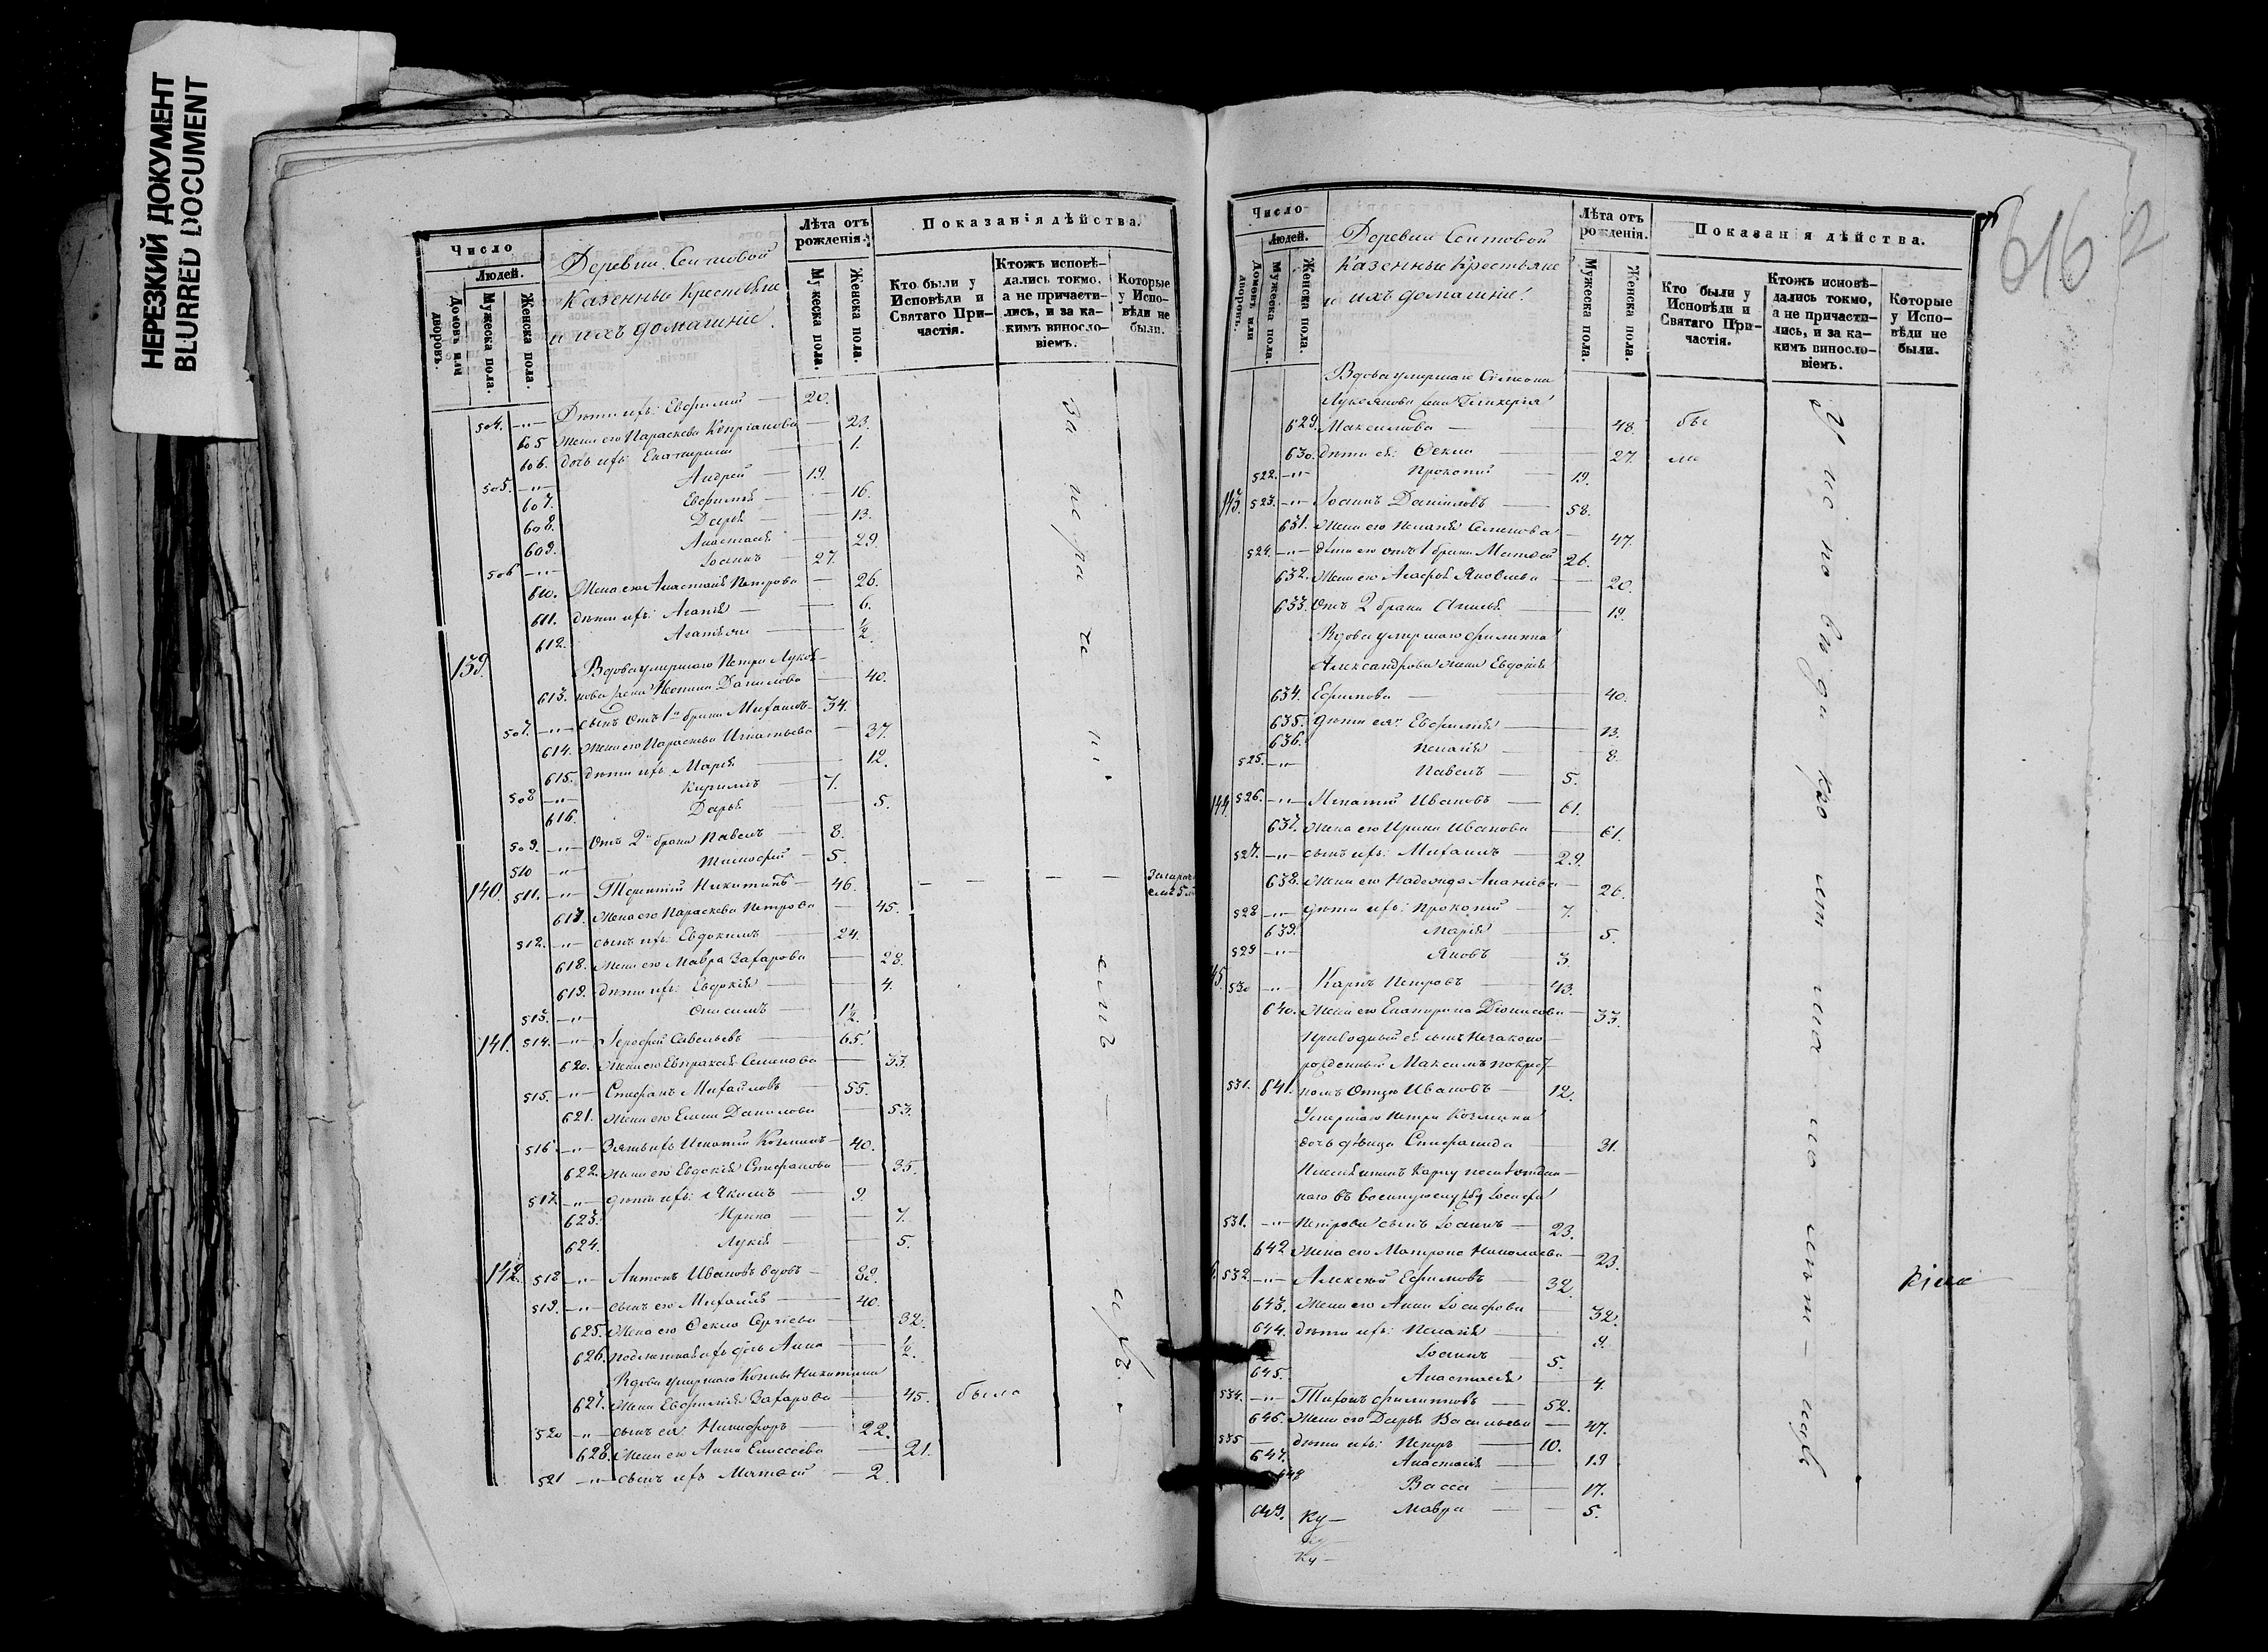 НЕРЕЗКИЙ ДОКУМЕНТ
BLURRED DOCUMENT
Число
Людей.
Домовъ или дворовъ.
Мужеска пола.
Женска пола.
Деревни Сентовой
Казенные Крестьяне
и ихъ домашніе.
Лѣта отъ рожденія.
Мужеска пола.
Женска пола.
Показанія дѣйства.
Кто были у Исповѣди и Святаго Причастія.
Ктожъ исповѣдались токмо, а не причастились, и за какимъ винословіемъ.
Которые у Исповѣди не были.
504. —"— Дѣти ихъ: Евфимій — 20.
605 Жена его Параскева Кипріанова — 23.
606. дочь ихъ Екатерина 1.
505. —"— Андрей — 19.
607. Евфимія — 16.
608. Дарья — 13.
609. Анастасія 29.
506 —"— Іоаннъ 27.
610. Жена его Анастасія Петрова — 26.
611. дѣти ихъ: Агапія — 6.
612. 1/2.
139. Вдова умершаго Петра Лукья-
613. нова жена Данилова 40.
507. —"— сынъ Отъ 1го брака Михаилъ — 34.
614. Жена его Параскева Игнатьева — 37.
615. дѣти ихъ: Марія 12.
508 —"— Кириллъ — 7.
616. Дарья 5.
509. —"— Отъ 2го брака Павелъ — 8.
510 —"— Тимофей — 5.
140. 511. —"— Терентій Никитинъ — 46. — — — —
617. Жена его Параскева Петрова — 45.
512. —"— сынъ ихъ: Евдокимъ 24.
618. Жена его Мавра Захарова — 28.
619. дѣти ихъ: Евдокія — 4.
513. —"— Онисимъ — 1 1/2.
141. 514. —"— Іерофей Савельевъ 65.
620. Жена его Евпраксія Семенова — 33.
515. —"— Стефанъ Михайловъ — 55.
621. Жена его Елена Данилова — 53.
516 —"— Зять ихъ Игнатій Козминъ — 40.
622. Жена его Евдокія Стефанова 35.
517. —"— дѣти ихъ: Якимъ — 9.
623. Ирина 7.
624. Лукія — 5.
142. 518 —"— Антонъ Ивановъ вдовъ — 82.
519. —"— сынъ его Михаилъ — 40.
625. Жена его Ѳекла Сергіева — 32.
626. ихъ дочь Анна — 1/2.
Вдова умершаго Козмы Никитина
627. Жена Евфимія Захарова — 45. была
520 —"— сынъ ея: Никифоръ — 22.
628. Жена его Анна Елисеева 21.
521 —"— сынъ ихъ Матѳей — 2.
За не ра че ні емъ
6162
Число
Людей.
Домовъ или дворовъ.
Мужеска пола.
Женска пола.
Деревни Сентовой
Казенные Крестьяне
и ихъ домашніе.
Лѣта отъ рожденія.
Мужеска пола.
Женска пола.
Показанія дѣйства.
Кто были у Исповѣди и Святаго Причастія.
Ктожъ исповѣдались токмо, а не причастились, и за какимъ винословіемъ.
Которые у Исповѣди не были.
Вдова умершаго Симеона
Лукьянова жена Гликерія
629. Максимова — 48. бы
630. дѣти ея: Ѳекла 27. ли
522. —"— Прокопій — 19.
143. 523. —"— Іоаннъ Даниловъ — 58.
631. Жена его Пелагія Семенова — 47.
524. —"— Дѣти его отъ 1 брака Матѳей 26.
632. Жена его Агафья Яковлева — 20.
633. Отъ 2 брака — 19.
Вдова умершаго Филиппа
Александрова жена Евдокія
634. Ефимова — 40.
635. дѣти ея: Евфимія 13.
636. Пелагія — 8.
525. —"— Павелъ — 5.
144. 526. —"— Игнатій Ивановъ — 61.
637. Жена его Ирина Иванова 61.
527. —"— сынъ ихъ: Михаилъ 29.
638. Жена его Надежда Ананіева — 26.
528 —"— дѣти ихъ: Прокопій — 7.
639. Марія 5.
529 —"— Яковъ 3.
145. 530 —"— Карпъ Петровъ — 43.
640. Жена его Екатерина Діонисова — 33.
Приводный ея сынъ Незаконо-
рожденный Максимъ по крест-
531. 641. номъ Отцѣ Ивановъ — 12.
Умершаго Петра Козмина
дочь дѣвица Стефанида — 31.
Племянникъ Карпу отдан-
наго въ военную службу Іосифа
531. —"— Петрова сынъ Іоаннъ — 23.
642 Жена его Матрона Николаева — 23.
532. —"— Алексѣй Ефимовъ 32.
643. Жена его Анна Іосифова 32.
644. дѣти ихъ: Пелагія — 9.
Іоаннъ 5.
645. Анастасія 4.
534. —"— Тихонъ Филипповъ — 52.
646. Жена его Дарья Васильева — 47.
535 — дѣти ихъ: Петръ — 10.
647. Анастасія — 19
648 Васса 17.
649. Мавра — 5.
Ку —
Ку —